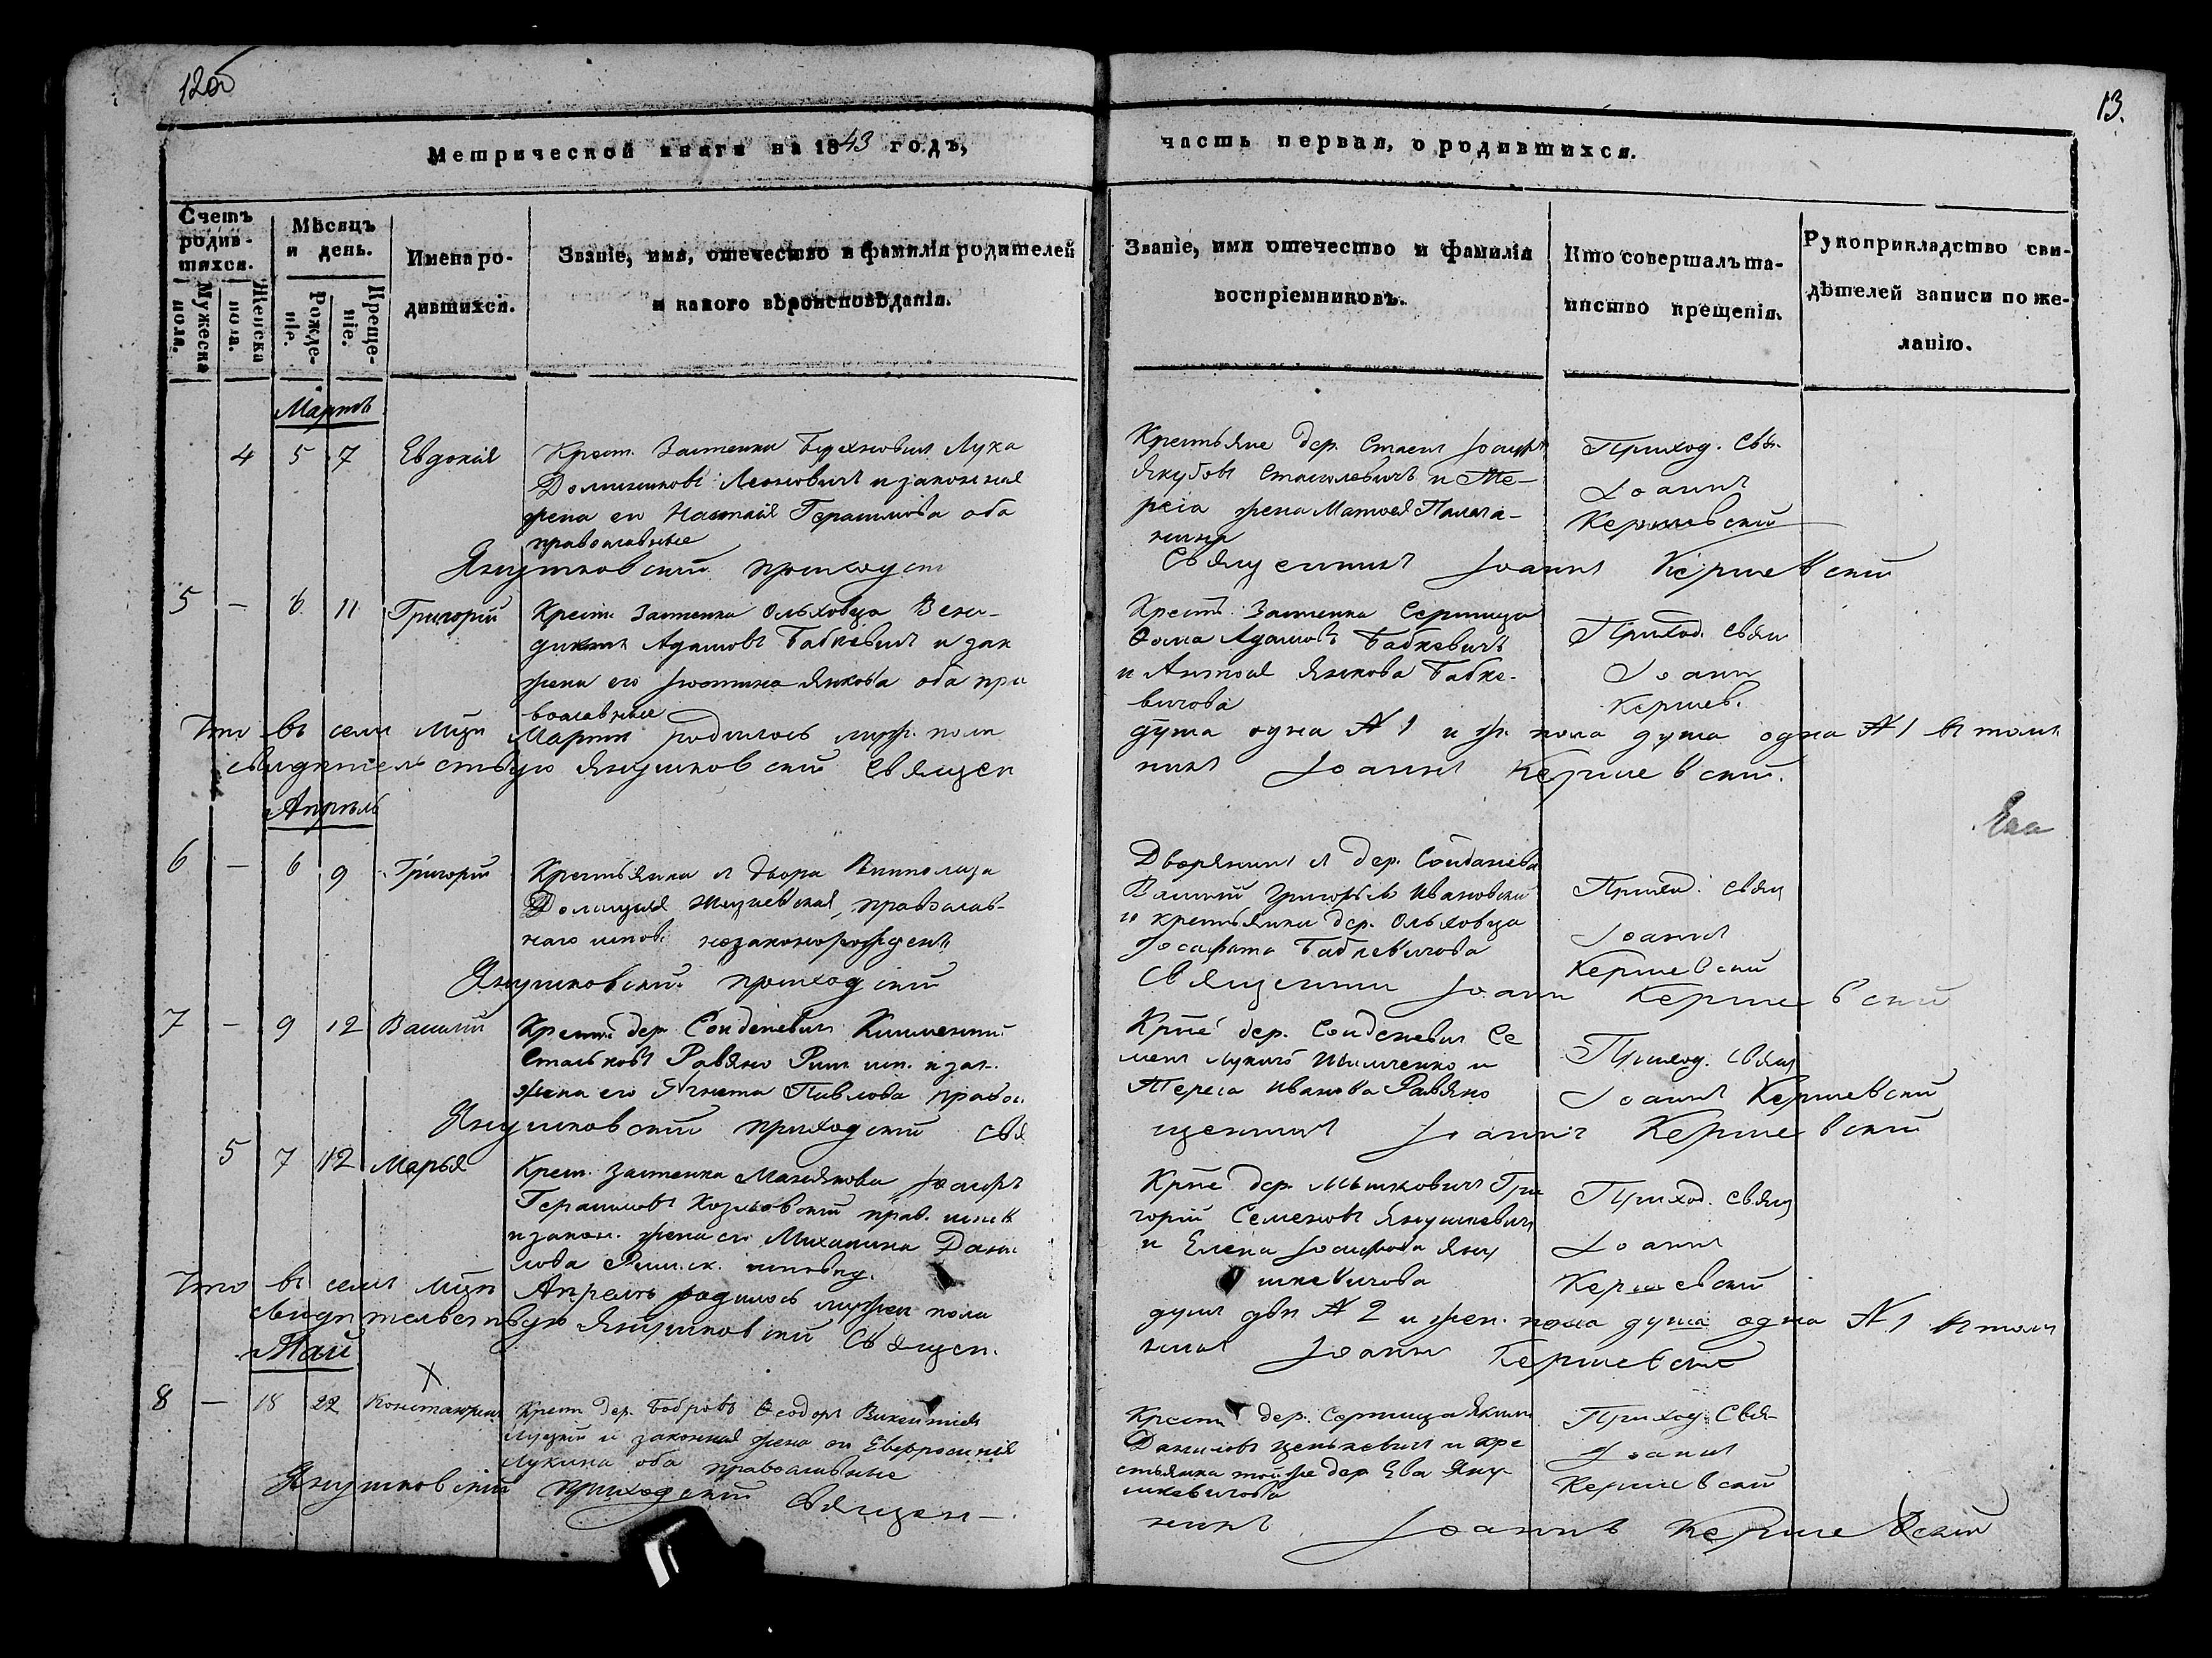 12об
13.
Метрической книги на 1843 годъ,
часть первая, о родившихся.
Счетъ родив-
шихся.
Мужеска пола.
Женска пола.
Мѣсяцъ
и день.
Рожде-
ніе.
Креще-
ніе.
Имена ро-
дившихся.
Званіе, имя, отечество и фамилія родителей
и какого вѣроисповѣданія.
Званіе, имя отечество и фамилія
воспріемниковъ.
Кто совершалъ та-
инство крещенія.
Рукоприкладство сви-
дѣтелей записи по же-
ланію.
Мартъ
4 5 7 Евдокія
Крест. Застенка Лука
Доминиковъ Леоновичъ и законная
жена его Настасія Герасимова оба
православные
Крестьяне дер. Іосифъ
Якубовъ и Те-
реса жена Матвея
Приход. Свя.
Іоаннъ
Кершевский
Янушковский приходский
Священникъ Іоаннъ Кершевский
5 — 6 11 Григорій
Крест. Застенка Ольховца Вени-
диктъ Адамовъ Бабкевичъ и зак
жена его Юстина Янкова оба пра
вославные
Крест. Застенка Серница
Ѳома Адамовъ Бабкевичъ
и Антося Янкова Бабке-
вичова
Приход. Свящ
Іоаннъ
Кершев.
Что въ семъ Мцѣ Мартѣ родилось муж. пола
душа одна № 1 и ж. пола душа одна № 1 въ томъ
свидѣтельствую Янушковский Священ
никъ Іоаннъ Кершевский.
Апрѣль
6 — 6 9 Григорій
Крестьянка двора
православ-
наго испов. незаконорожденъ
Дворянинъ дер.
Василий Григорьевъ Ивановский
и крестьянка дер. Ольховца
Іосафата Бабкевичова
Приход. Свящ
Іоаннъ
Кершевский
Ева
Янушковский приходский
Священникъ Іоаннъ Кершевский
7 — 9 12 Василій
Крестьян дер. Климентий
Стаськовъ Равяко Рим. исп. и зак.
жена его Агнета Павлова правос.
Крт̃не дер. Се
менъ и
Тереса Иванова Равяко
Приход. Свящ
Іоаннъ Кершевский
Янушковский приходский свя
щенникъ Іоаннъ Кершевский
5 7 12 Марья
Крест. Застенка Іосифъ
Герасимовъ Козловский прав. испов
и закон. жена его Михалина Дани
лова Римск. исповѣд.
Крт̃не дер. Мышковичъ Гри
горій Семеновъ Янушкевичъ
и Елена Іосифова Яну
шкевичова
Приход. Свящ
Іоаннъ
Кершевский
Что въ семъ Мцѣ Апрелѣ родилось мужеск пола
душъ двѣ № 2 и жен. пола душа одна № 1 въ томъ
свидѣтельствую Янушковский Священ.
никъ Іоаннъ Кершевский
Май
Х
8 — 18 22 Константинъ
Крест дер. Бобровъ Ѳеодоръ Викентиевъ
и законная жена его Евфросинія
Лукина оба православные
Крестн дер. Серница Якимъ
Даниловъ и кре
стьянка той же дер Ева Яну-
шкевичова
Приход Свя-
Іоаннъ
Кершевский
Янушковский приходский Священ-
никъ Іоаннъ Кершевский